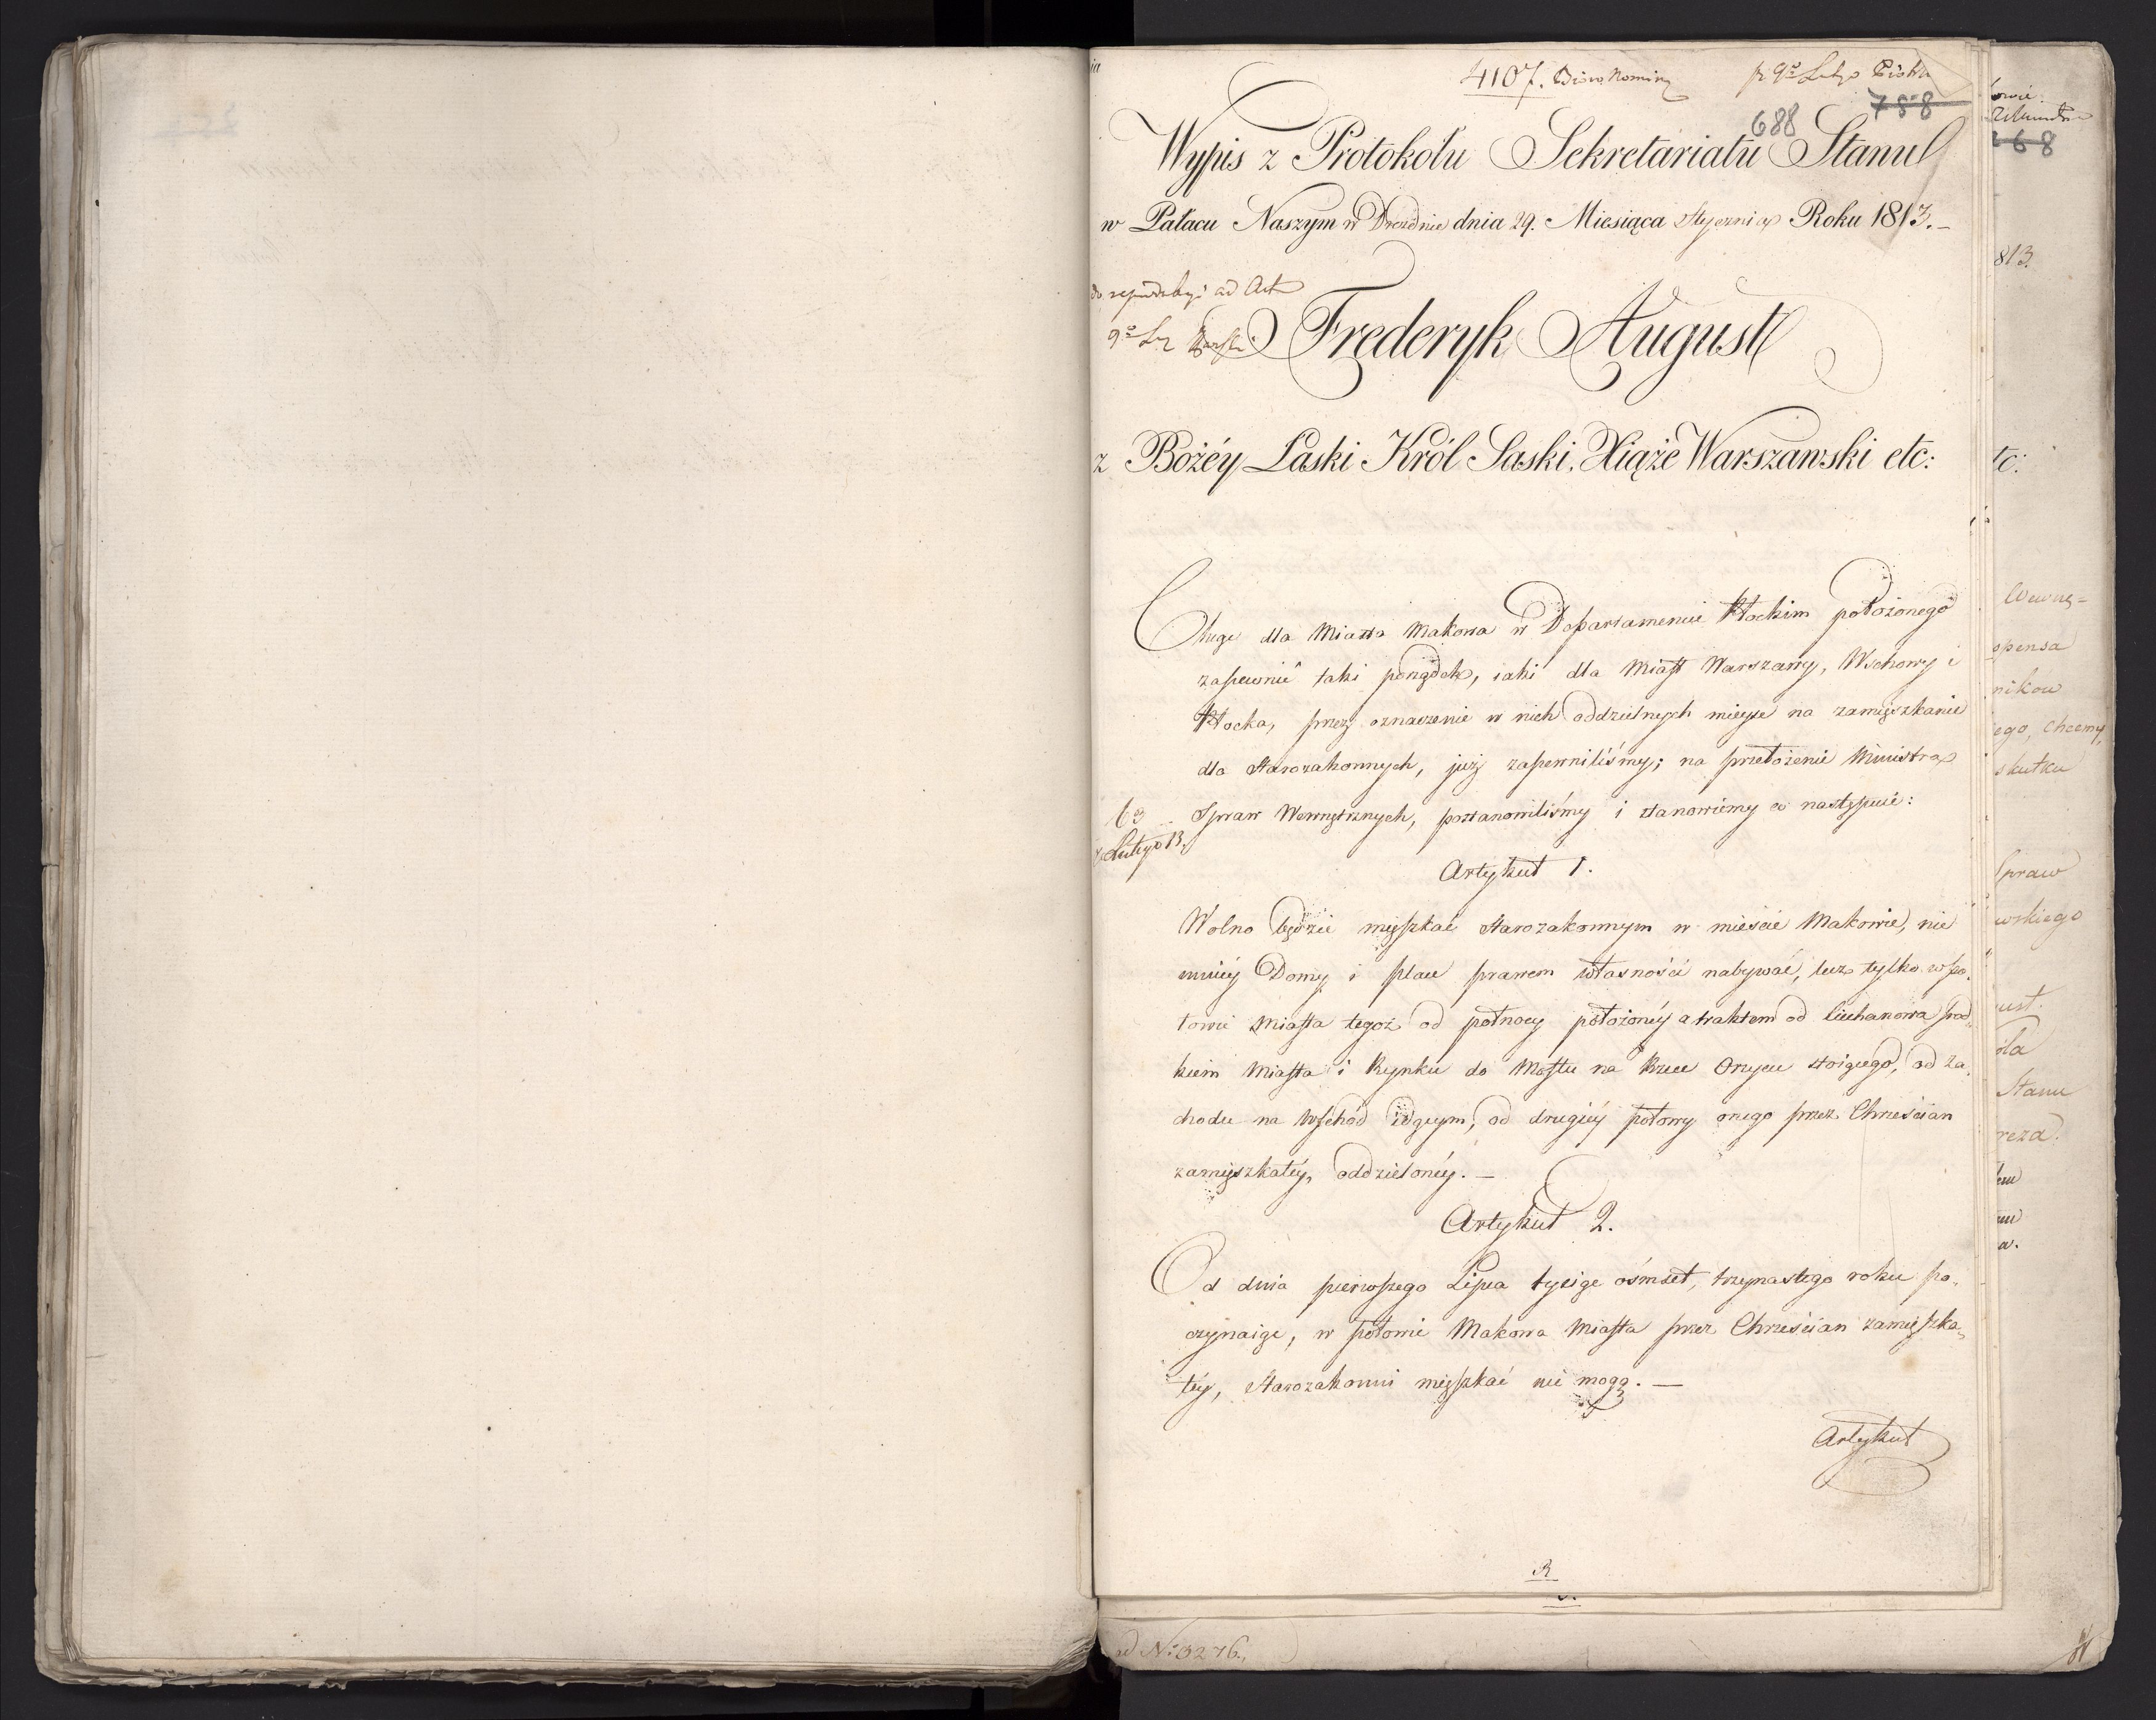 4107.
688
788
Wypis z Protokołu Sekretariatu Stanu
w Pałacu Naszym w Dreźnie dnia 29. Miesiąca Stycznia Roku 1813.–
ad Acta
Frederyk August
z Bożéy Łaski Król Saski, Xiąże Warszawski etc:
Chcąc dla Miasta Makowa w Departamencie Płockim położonego
zapewnić taki porządek, iaki dla Miast Warszawy, Wschowy i
Płocka, przez oznaczenie w nich oddzielnych mieysc na zamięszkanie
dla Starozakonnych, już zapewniliśmy; na przełożenie Ministra
63
Spraw Wewnętrznych, postanowiliśmy i stanowiemy co następuie:
Lutego 13.
Artykuł 1.
Wolno będzie mięszkać Starozakonnym w mieście Makowie, nie
mniéy Domy i place prawem własności nabywać, lecz tylko w po„
łowie miasta tegoż od północy położonéy a traktem od Ciechanowa środ„
kiem Miasta i Rynku do Mostu na Rzece Orzycu stoiącego, od Za„
chodu na Wschód idącym, od drugiéy połowy onego przez Chrześcian
zamięszkałéy, oddzielonéy.–
Artykuł 2.
Od dnia pierwszego Lipca tysiąc ośmset, trzynastego roku po„
czynaiąc, w połowie Makowa Miasta przez Chrześcian zamięszka„
łéy, Starozakonni mięszkać nie mogą.–
Artykuł
R
ad No 3276.
268
813.
tc:
Wewnę=
nikow
ego, chcemy,
skutku
Spraw
wskiego
ust.
Stanu